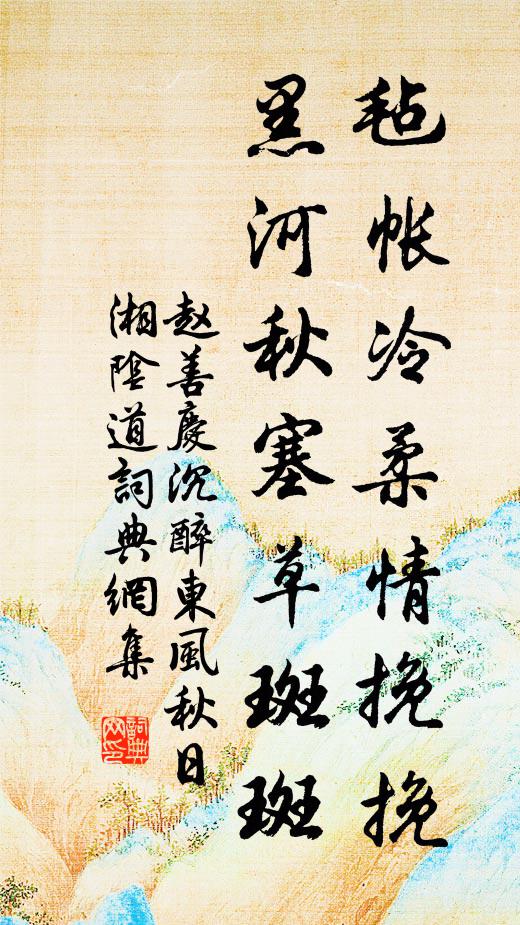 毡帐冷柔情挽挽
黑河秋塞草斑斑
赵善慶沉醉東風秋日
湘陰道詞典網集
詞典网印